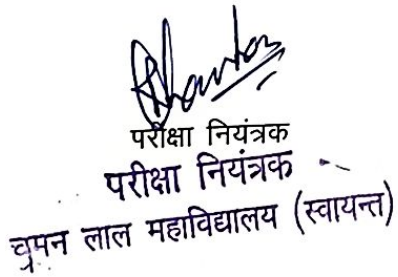 परीक्षा नियंत्रक
परीक्षा नियंत्रक
चमन लाल महाविद्यालय (स्वायन्त)